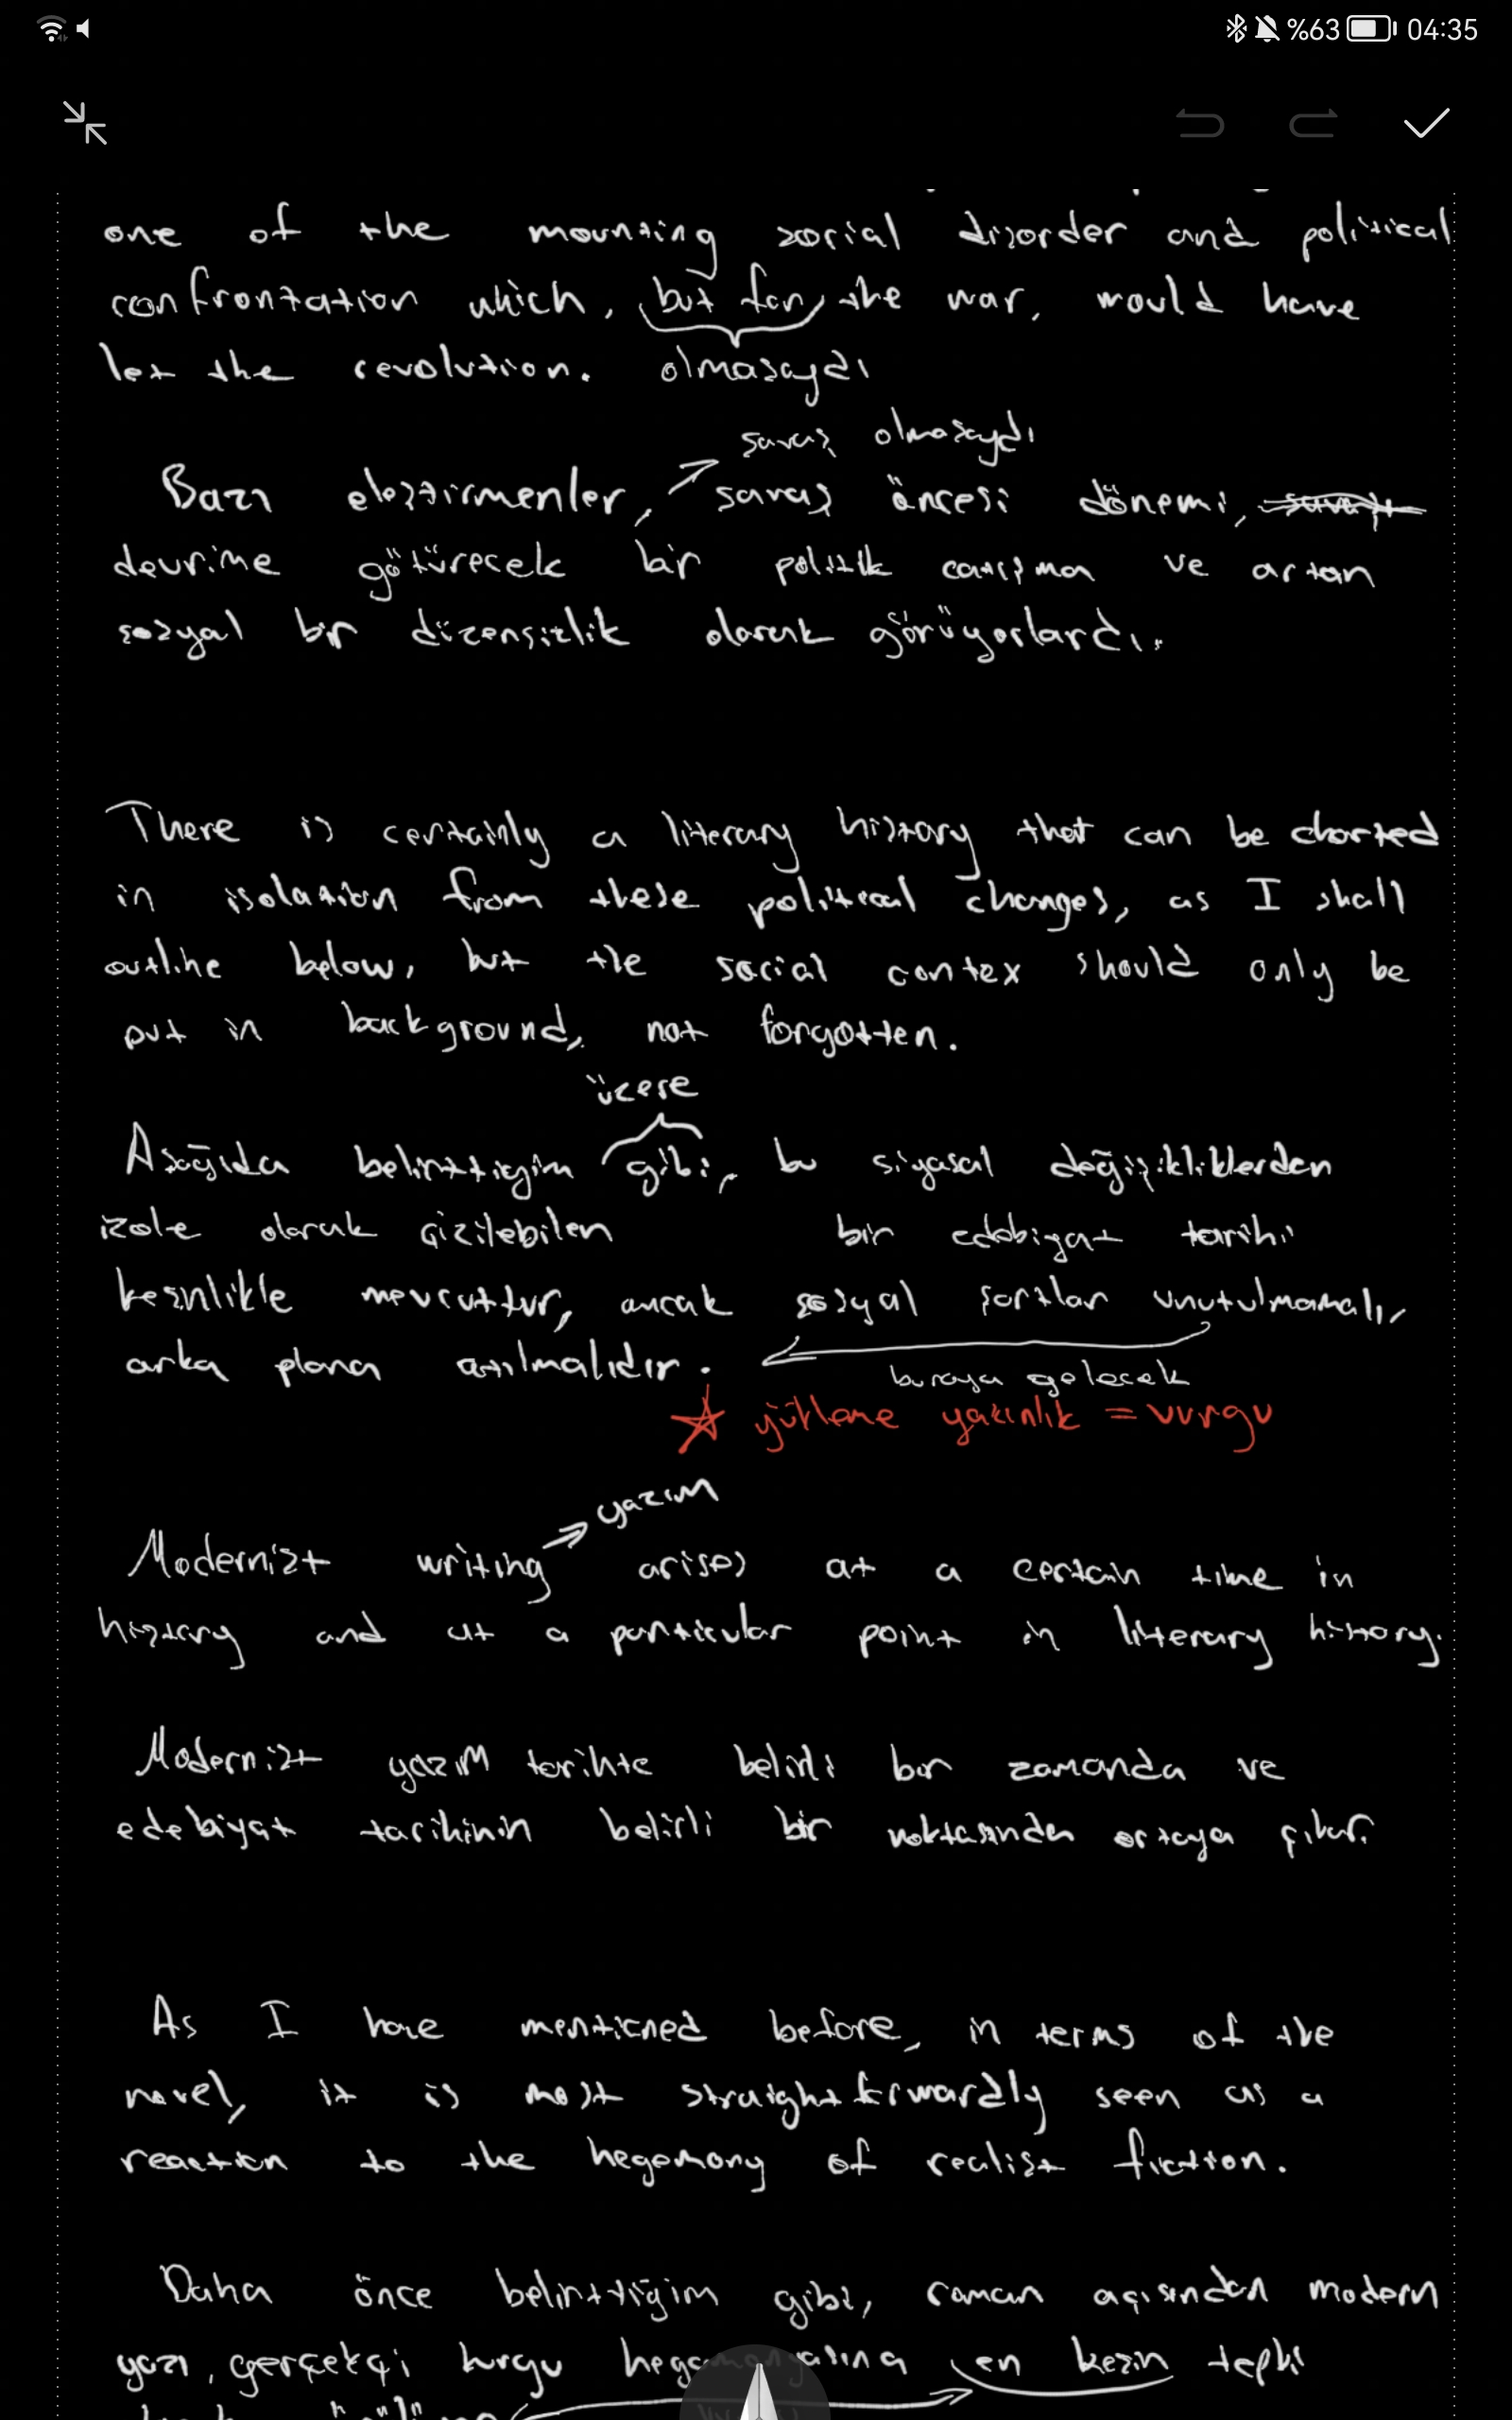 %63 04:35
one of the mounting social disorder and political
confrontation which, but for, the war, would have
let the revolution. olmasaydı
savaş olmasaydı
Bazı eleştirmenler, savaş öncesi dönemi,
devrime götürecek bir politik çatışma ve artan
sosyal bir düzensizlik olarak görüyorlardı.
There is certainly a literary history that can be charted
in isolation from these political changes, as I shall
outline below, but the social contex should only be
put in background, not forgotten.
üzere
Aşağıda belirttigim gibi, bu siyasal değişikliklerden
izole olarak çizilebilen bir edebiyat tarihi
kesinlikle mevcuttur, ancak sosyal şartlar unutulmamalı,
arka plana atılmalıdır.
buraya gelecek
yükleme yakınlık = vurgu
yazım
Modernist writing arises at a certain time in
history and at a particular point in literary history.
Modernist yazım tarihte belirli bir zamanda ve
edebiyat tarihinin belirli bir noktasında ortaya çıkar.
As I have mentioned before, in terms of the
novel, it is most straightforwardly seen as a
reaction to the hegemony of realist fiction.
Daha önce belirttiğim gibi, roman açısından modern
yazı, gerçekçi kurgu hegemonyasına en kesin tepki